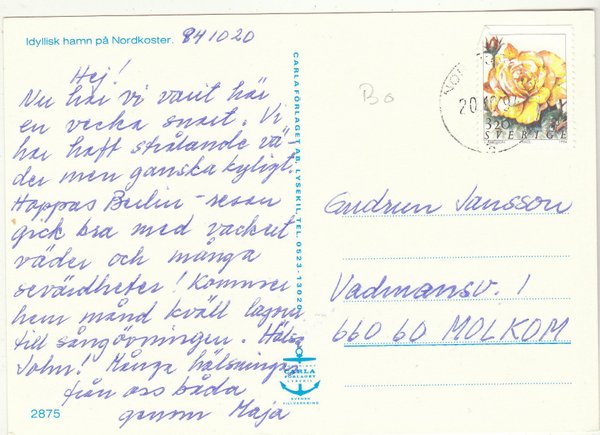 Idyllisk hamn på Nordkoster. 941020
Hej!
Nu har vi varit här
en vecka snart. Vi
har haft strålande vä-
der men ganska kyligt.
Hoppas Berlin-resan
gick bra med vackert
väder och många
sevärdheter! Kommer
hem månd kväll lagom
till sångövningen. Hälsa
John! Många hälsningar
från oss båda
genom Maja
2875
CARLA FÖRLAGET AB, LYSEKIL, TEL. 0523-13020
CARLA
FÖRLAGET
LYSEKIL
Bo
20
3.20
SVERIGE
Gudrun Jansson
Vadmansv. 1
660 60 MOLKOM